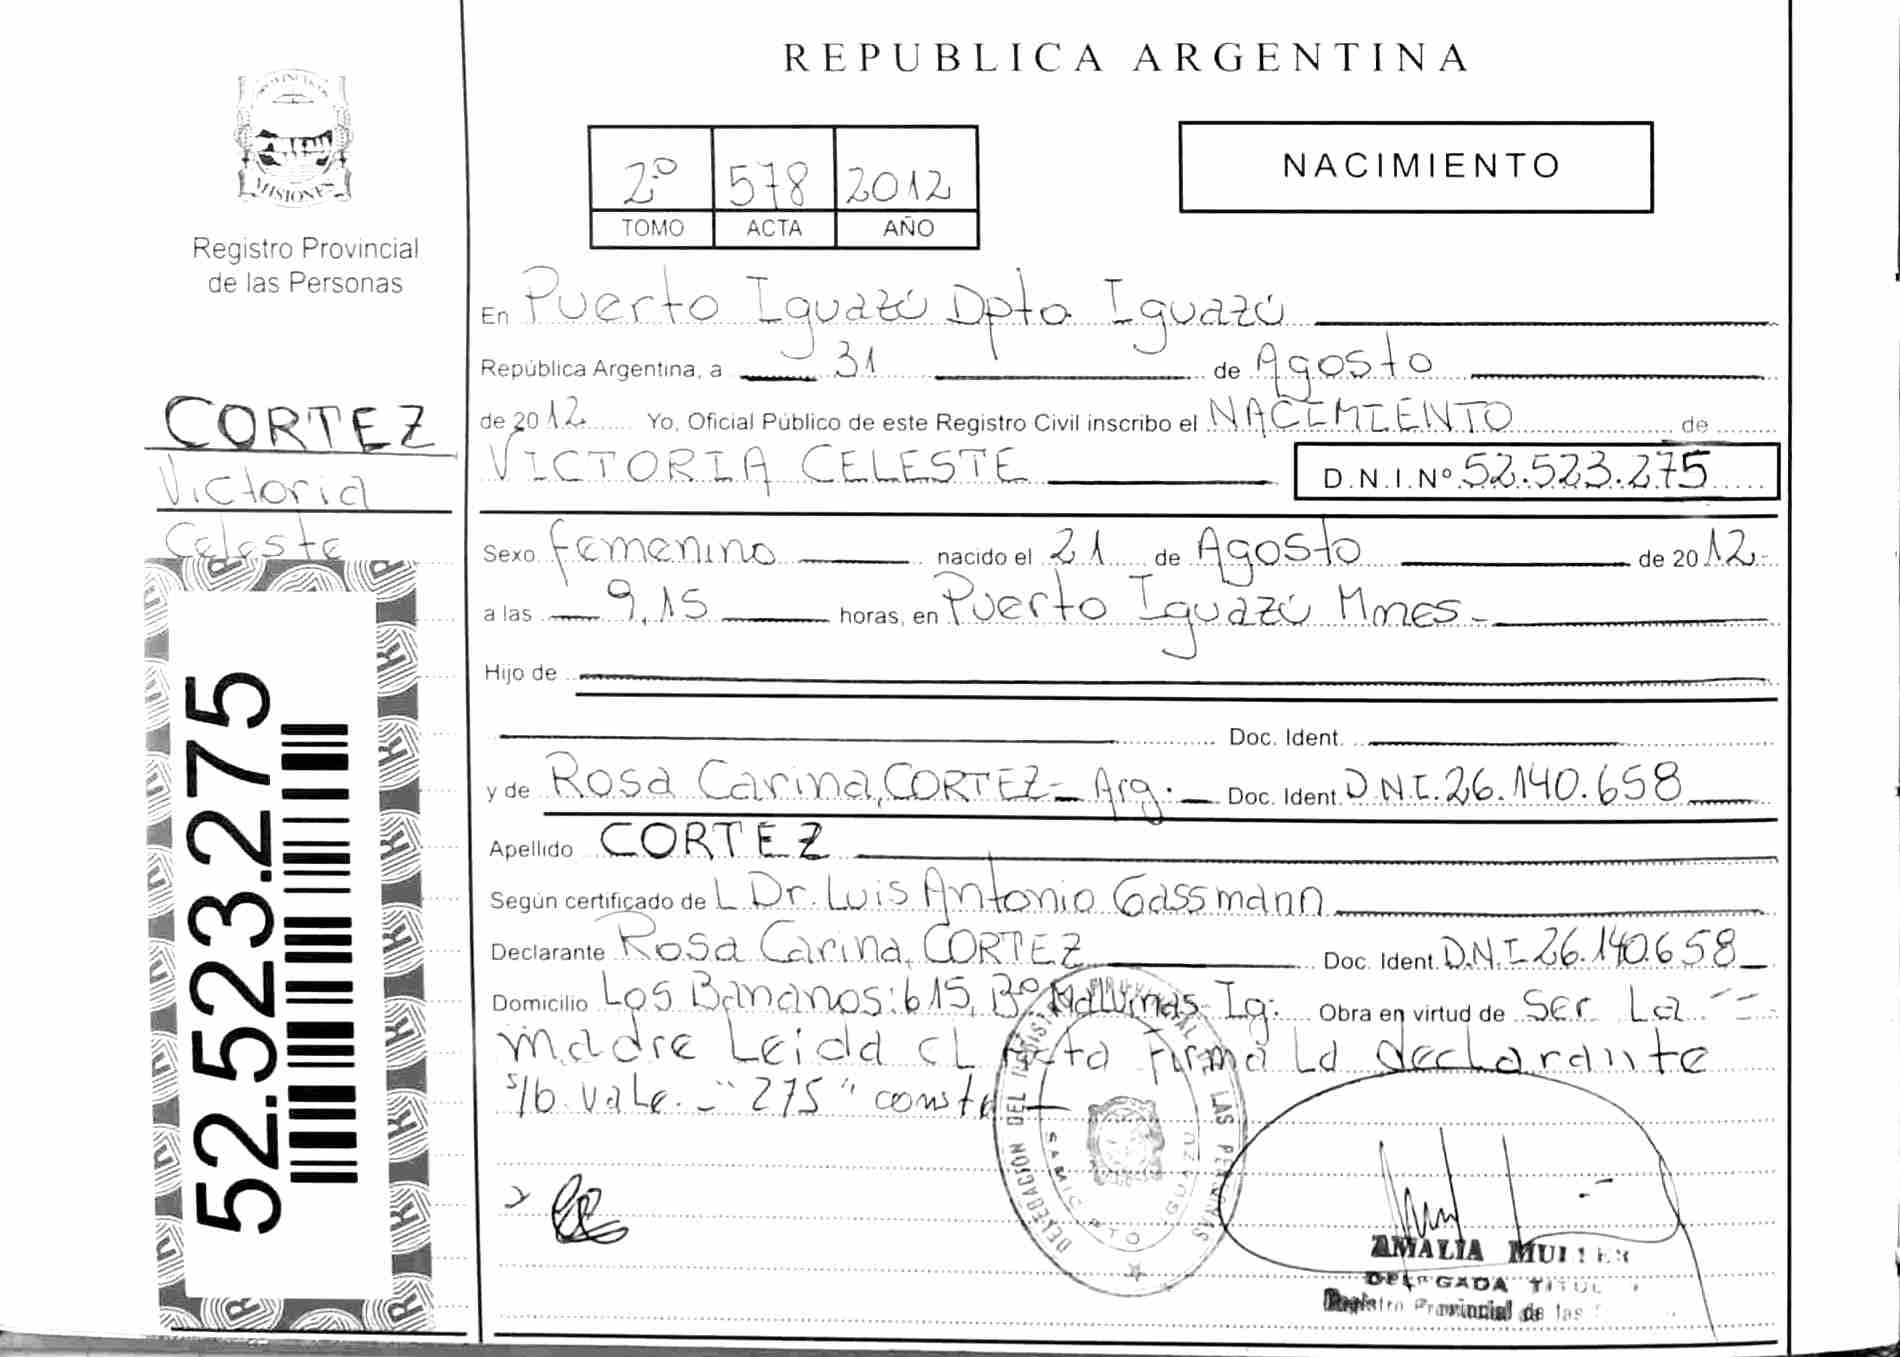 PROVINCIA DE
MISIONES
Registro Provincial
de las Personas
CORTEZ
Victoria
Celeste
52.523.275
REPUBLICA ARGENTINA
2º 578 2012
TOMO ACTA AÑO
NACIMIENTO
En Puerto Iguazú Dpto Iguazú
República Argentina, a 31 de Agosto
de 2012 Yo, Oficial Público de este Registro Civil inscribo el NACIMIENTO de
VICTORIA CELESTE D.N.I.Nº 52.523.275
Sexo femenino nacido el 21 de Agosto de 2012.-
a las 9,15 horas, en Puerto Iguazú Mnes.-
Hijo de
Doc. Ident.
y de Rosa Carina, CORTEZ- Arg.- Doc. Ident. D.N.I. 26.140.658
Apellido CORTEZ
Según certificado de L Dr. Luis Antonio Gassmann
Declarante Rosa Carina, CORTEZ Doc. Ident. D.N.I 26.140.658
Domicilio Los Bananos: 615, Bº Malvinas- Ig: Obra en virtud de Ser La
madre Leida el Acta firma La declarante
s/b vale.- "275" conste
DELEGACIÓN DEL REGISTRO PROVINCIAL DE LAS PERSONAS
PTO IGUAZU
AMALIA MULLER
DELEGADA TITUL
Registro Provincial de las